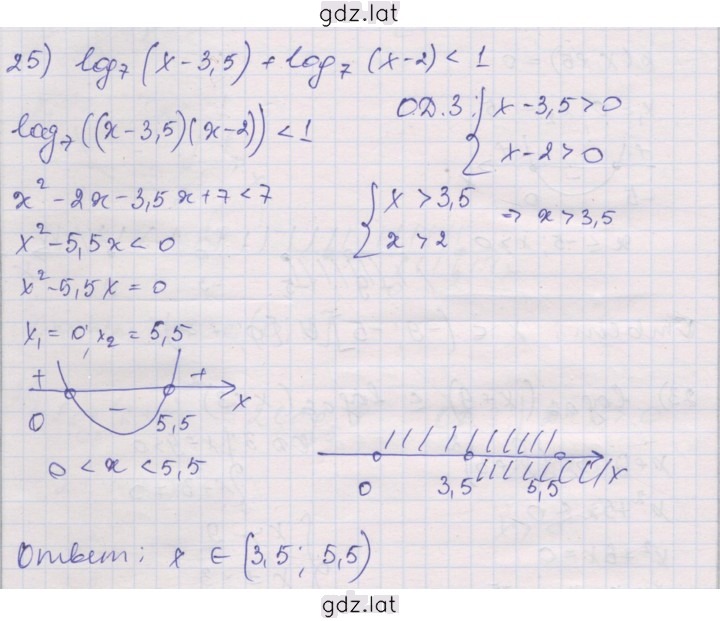 gdz.lat
25) log₇ (x-3,5) + log₇ (x-2) < 1
log₇((x-3,5)(x-2)) < 1
О.Д.З: { x-3,5>0
x-2>0
x²-2x-3,5x+7<7
{ x > 3,5
x > 2
⇒ x > 3,5
x²-5,5x < 0
x²-5,5x = 0
x₁ = 0; x₂ = 5,5
+ - + x
0 5,5
0 < x < 5,5
0 3,5 5,5 x
Ответ: x ∈ (3,5; 5,5)
gdz.lat